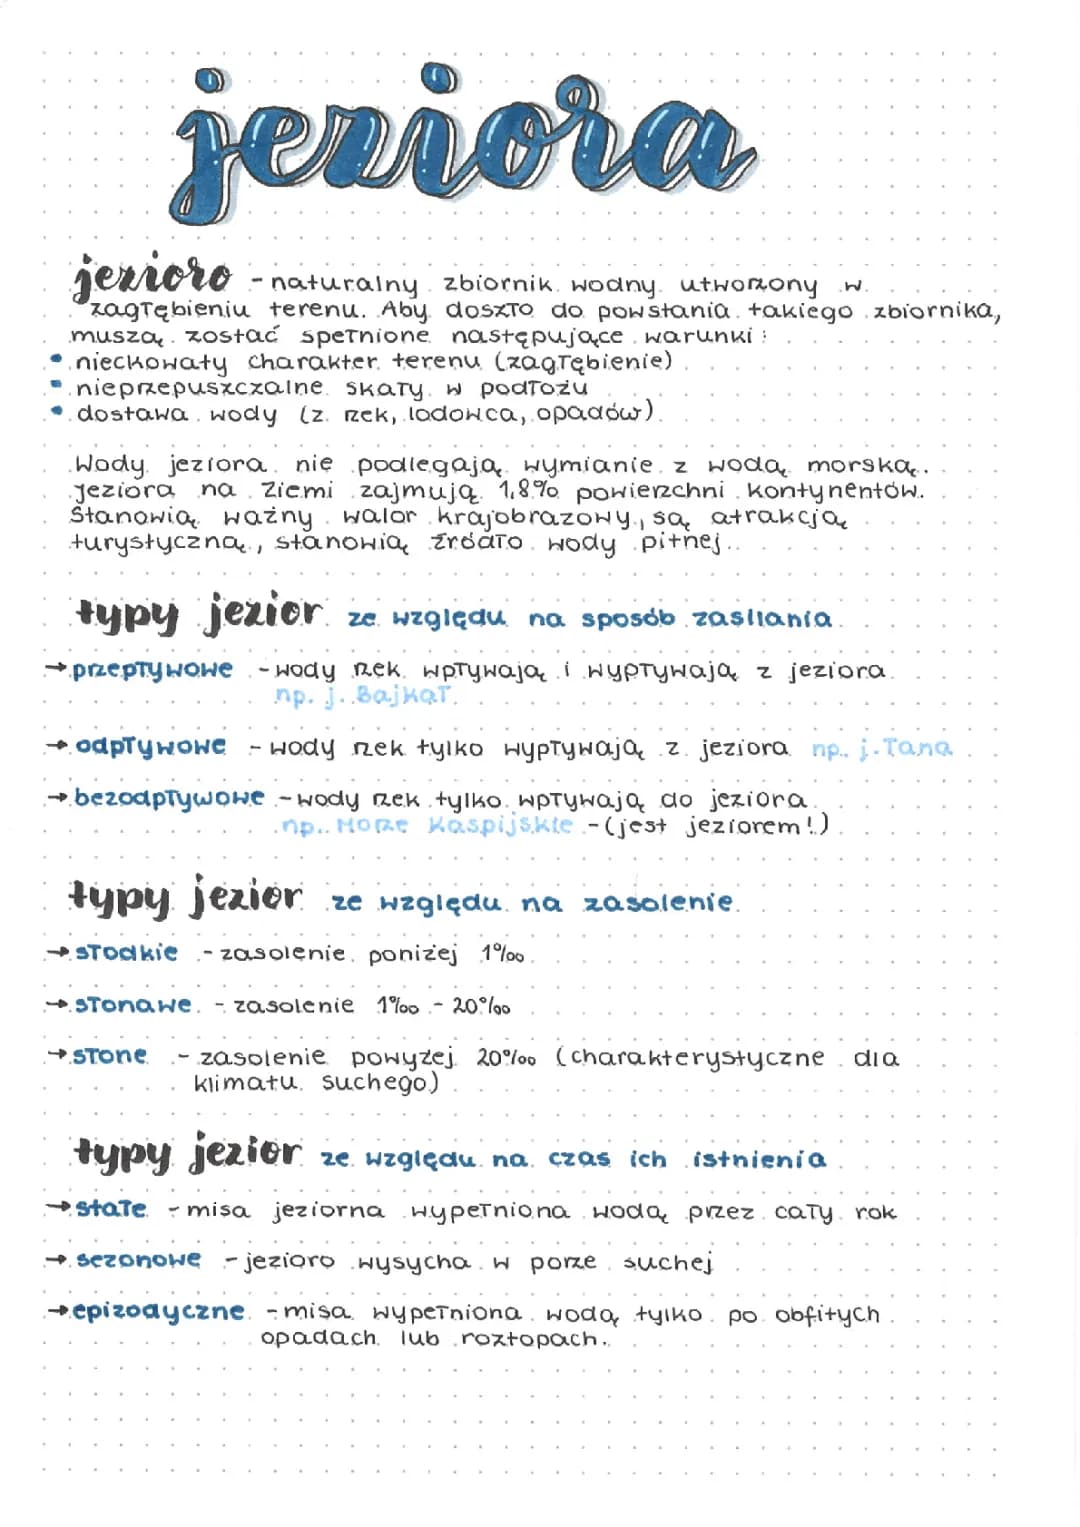 jeziora
jezioro - naturalny zbiornik wodny utworzony w
zagłębieniu terenu. Aby doszło do powstania takiego zbiornika,
muszą zostać spełnione następujące warunki:
• nieckowaty charakter terenu (zagłębienie)
• nieprzepuszczalne skały w podłożu
• dostawa wody (z rzek, lodowca, opadów)
Wody jeziora nie podlegają wymianie z wodą morską.
Jeziora na Ziemi zajmują 1,8% powierzchni kontynentów.
Stanowią ważny walor krajobrazowy, są atrakcją
turystyczną, stanowią źródło wody pitnej.
typy jezior ze względu na sposób zasilania
→ przepływowe - wody rzek wpływają i wypływają z jeziora
np. j. Bajkał
→ odpływowe - wody rzek tylko wypływają z jeziora np. j. Tana
→ bezodpływowe - wody rzek tylko wpływają do jeziora
np. Morze Kaspijskie - (jest jeziorem!)
typy jezior ze względu na zasolenie
→ słodkie - zasolenie poniżej 1‰
→ słonawe - zasolenie 1‰ - 20‰
→ słone - zasolenie powyżej 20‰ (charakterystyczne dla
klimatu suchego)
typy jezior ze względu na czas ich istnienia
→ stałe - misa jeziorna wypełniona wodą przez cały rok
→ sezonowe - jezioro wysycha w porze suchej
→ epizodyczne - misa wypełniona wodą tylko po obfitych
opadach lub roztopach.